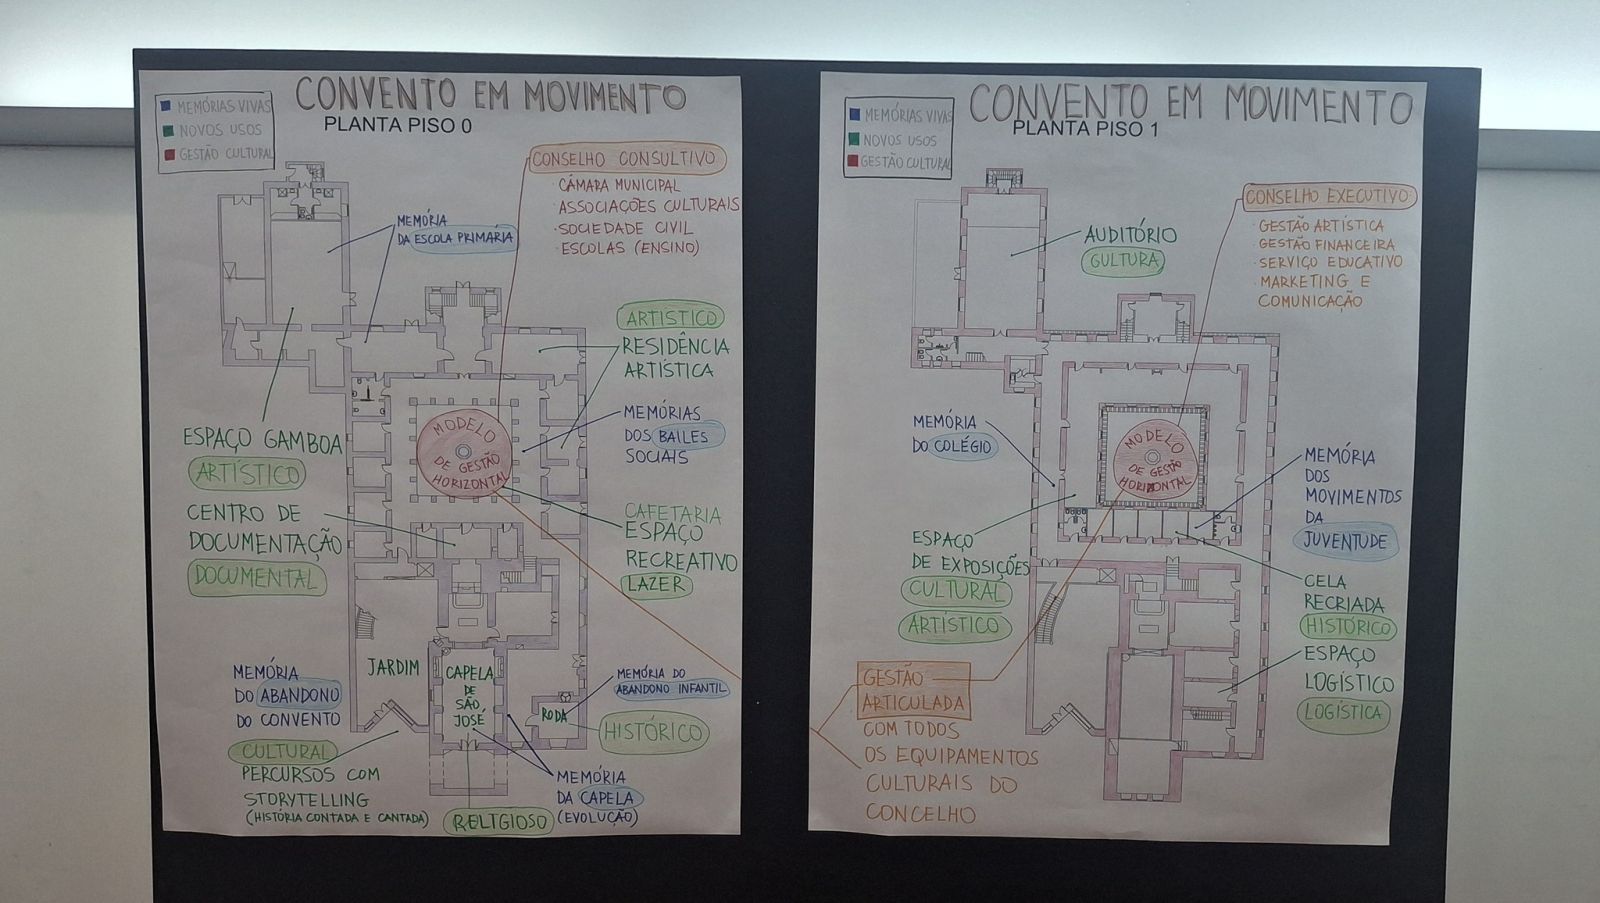 CONVENTO EM MOVIMENTO
PLANTA PISO 0
MEMÓRIAS VIVAS
NOVOS USOS
GESTÃO CULTURAL
CONSELHO CONSULTIVO
· CÂMARA MUNICIPAL
· ASSOCIAÇÕES CULTURAIS
· SOCIEDADE CIVIL
· ESCOLAS (ENSINO)
MEMÓRIA
DA ESCOLA PRIMÁRIA
ARTÍSTICO
RESIDÊNCIA
ARTÍSTICA
MEMÓRIAS
DOS BAILES
SOCIAIS
MODELO
DE GESTÃO
HORIZONTAL
ESPAÇO GAMBOA
ARTÍSTICO
CENTRO DE
DOCUMENTAÇÃO
DOCUMENTAL
CAFETARIA
ESPAÇO
RECREATIVO
LAZER
JARDIM
CAPELA
DE
SÃO
JOSÉ
MEMÓRIA DO
ABANDONO INFANTIL
RODA
HISTÓRICO
MEMÓRIA
DO ABANDONO
DO CONVENTO
CULTURAL
PERCURSOS COM
STORYTELLING
(HISTÓRIA CONTADA E CANTADA)
RELIGIOSO
MEMÓRIA
DA CAPELA
(EVOLUÇÃO)
CONVENTO EM MOVIMENTO
PLANTA PISO 1
MEMÓRIAS VIVAS
NOVOS USOS
GESTÃO CULTURAL
CONSELHO EXECUTIVO
· GESTÃO ARTÍSTICA
· GESTÃO FINANCEIRA
· SERVIÇO EDUCATIVO
· MARKETING E
COMUNICAÇÃO
AUDITÓRIO
GULTURA
MEMÓRIA
DO COLÉGIO
MODELO
DE GESTÃO
HORIZONTAL
MEMÓRIA
DOS
MOVIMENTOS
DA
JUVENTUDE
ESPAÇO
DE EXPOSIÇÕES
CULTURAL
ARTÍSTICO
CELA
RECRIADA
HISTÓRICO
ESPAÇO
LOGÍSTICO
LOGÍSTICA
GESTÃO
ARTICULADA
COM TODOS
OS EQUIPAMENTOS
CULTURAIS DO
CONCELHO